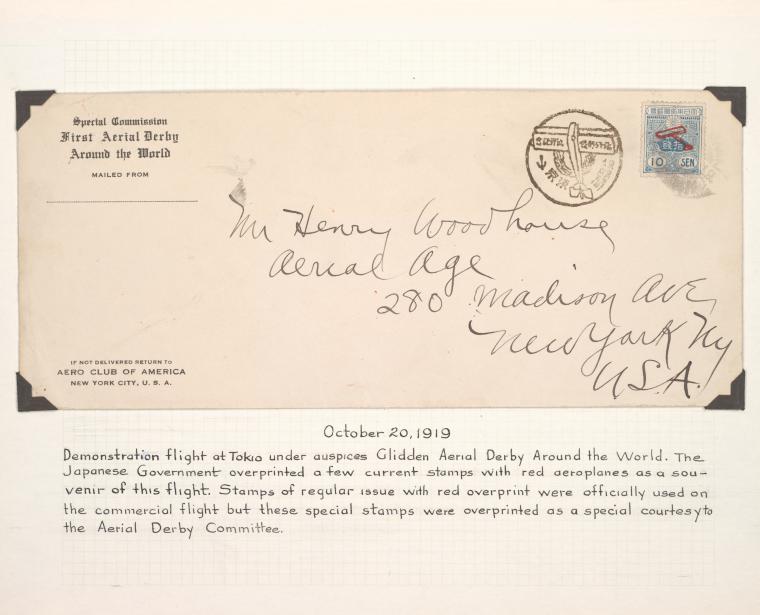 Special Commission
First Aerial Derby
Around the World
MAILED FROM
10 SEN
Mr Henry Woodhouse
Aerial Age
280 Madison Ave,
New York Ny
U.S.A.
IF NOT DELIVERED RETURN TO
AERO CLUB OF AMERICA
NEW YORK CITY, U. S. A.
October 20, 1919
Demonstration flight at Tokio under auspices Glidden Aerial Derby Around the World. The
Japanese Government overprinted a few current stamps with red aeroplanes as a sou-
venir of this flight. Stamps of regular issue with red overprint were officially used on
the commercial flight but these special stamps were overprinted as a special courtesy to
the Aerial Derby Committee.